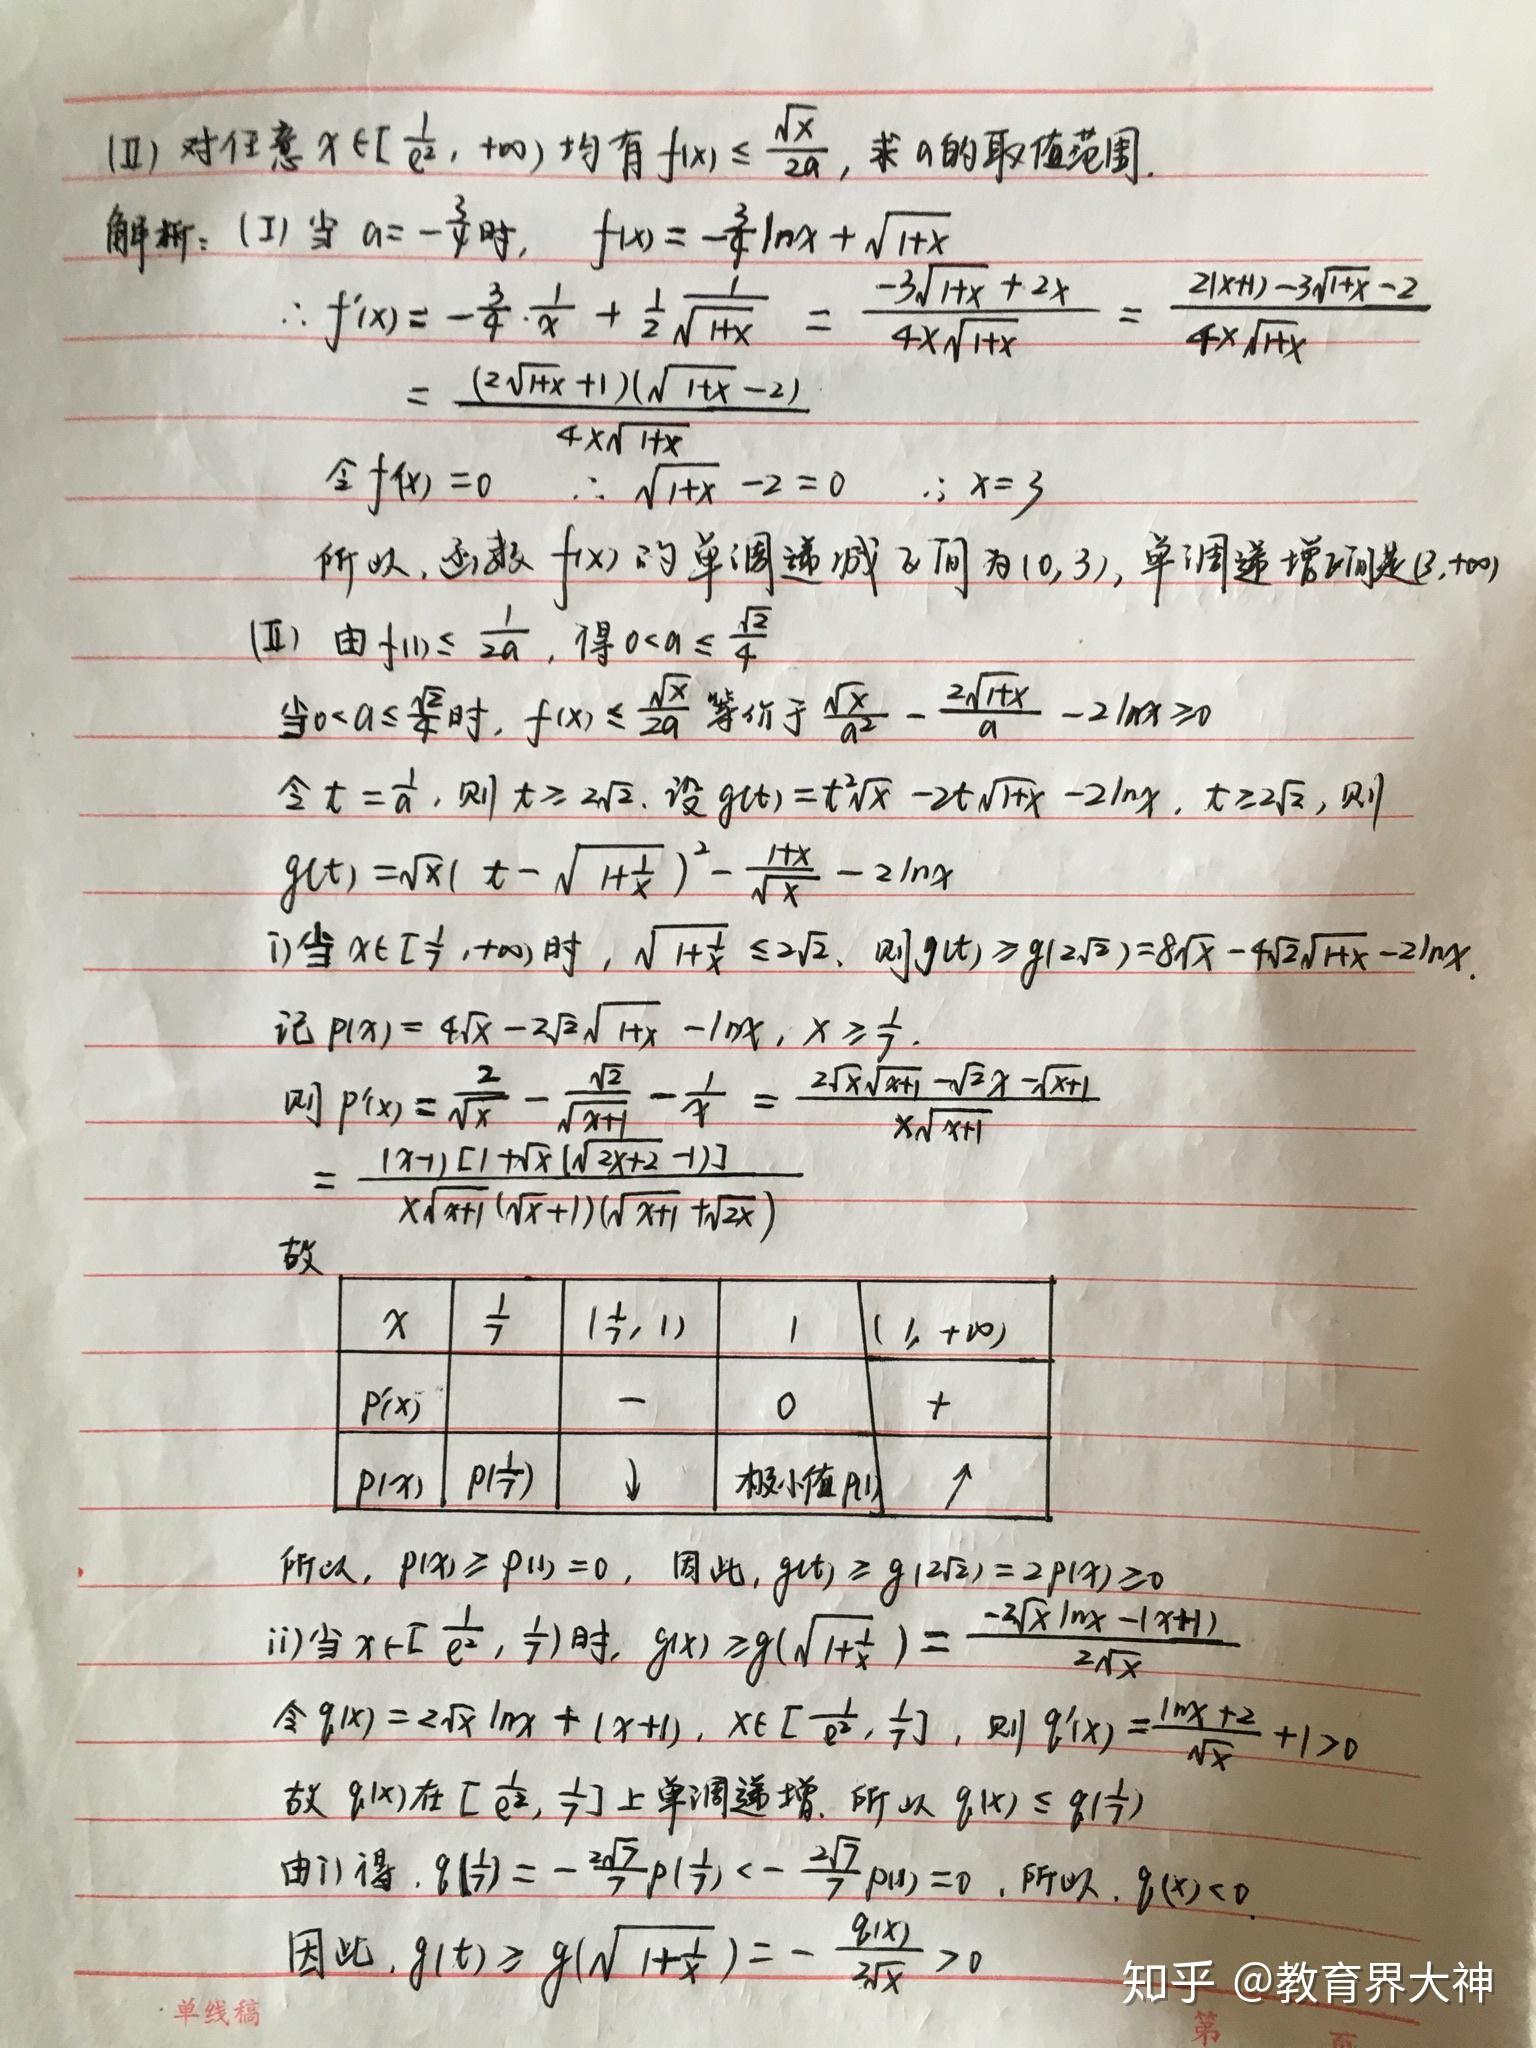 (Ⅱ) 对任意 x∈[1/e², +∞) 均有 f(x) ≤ √x/2a, 求a的取值范围.
解析: (Ⅰ) 当 a=-3/4时, f(x) = -3/4 lnx + √(1+x)
∴ f'(x) = -3/4 · 1/x + 1/2 1/√(1+x) = (-3√(1+x) + 2x)/(4x√(1+x)) = (2(x+1) - 3√(1+x) - 2)/(4x√(1+x))
= (2√(1+x) + 1)(√(1+x) - 2)/(4x√(1+x))
令 f'(x) = 0 ∴ √(1+x) - 2 = 0 ∴ x = 3
所以, 函数 f(x) 的单调递减区间为(0, 3), 单调递增区间是(3, +∞)
(Ⅱ) 由 f(1) ≤ 1/2a, 得 0<a ≤ √2/4
当0<a≤√2/4时, f(x) ≤ √x/2a 等价于 √x/a² - 2√(1+x)/a - 2lnx ≥ 0
令 t = 1/a, 则 t ≥ 2√2. 设 g(t) = t²√x - 2t√(1+x) - 2lnx, t ≥ 2√2, 则
g(t) = √x( t - √(1+1/x) )² - (1+x)/√x - 2lnx
i) 当 x∈[1/7, +∞) 时, √(1+1/x) ≤ 2√2. 则g(t) ≥ g(2√2) = 8√x - 4√2√(1+x) - 2lnx.
记 p(x) = 4√x - 2√2√(1+x) - lnx, x ≥ 1/7.
则 p'(x) = 2/√x - √2/√(x+1) - 1/x = (2√x√(x+1) - √2x - √(x+1))/(x√(x+1))
= (x-1)[1+√x(√(2x+2) - 1)]/(x√(x+1)(√x+1)(√(x+1) + √2x))
故
x 1/7 (1/7, 1) 1 (1, +∞)
p'(x) - 0 +
p(x) p(1/7) ↓ 极小值p(1) ↑
所以, p(x) ≥ p(1) = 0, 因此, g(t) ≥ g(2√2) = 2p(x) ≥ 0
ii) 当 x∈[1/e², 1/7) 时, g(x) ≥ g(√(1+1/x)) = (-2√x lnx - (x+1))/2√x
令 q(x) = 2√x lnx + (x+1), x∈[1/e², 1/7], 则 q'(x) = (lnx+2)/√x + 1 > 0
故 q(x) 在 [1/e², 1/7] 上单调递增. 所以 q(x) ≤ q(1/7)
由i) 得, q(1/7) = -2√7/7 p(1/7) < -2√7/7 p(1) = 0, 所以, q(x) < 0.
因此, g(t) ≥ g(√(1+1/x)) = - q(x)/2√x > 0
知乎 @教育界大神
单线稿 第 页